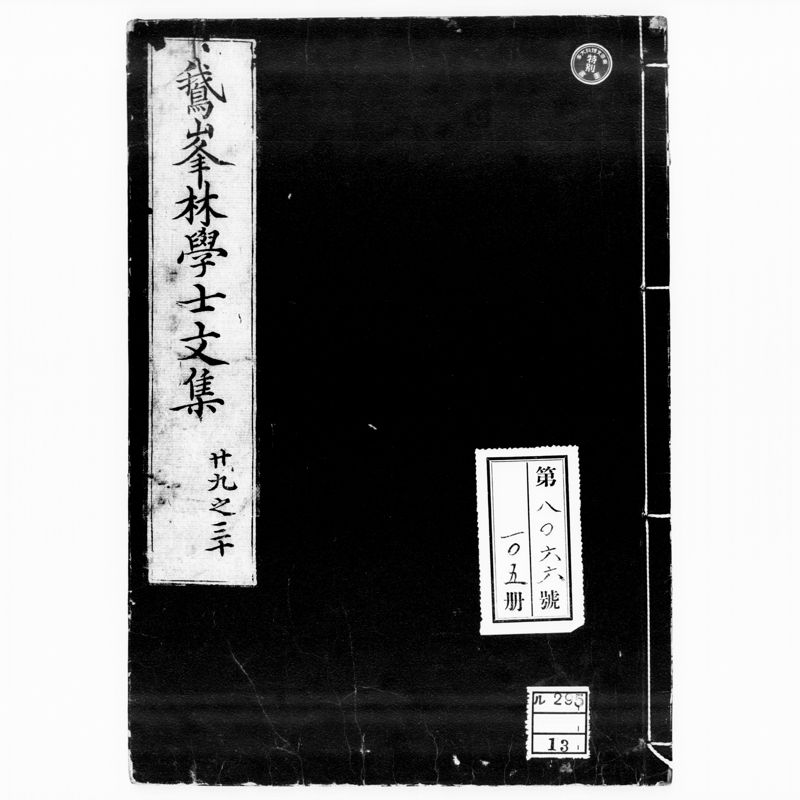 鵞峯林學士文集
廿九之三十
特別
第八〇六六號
一〇五册
ル 295
13